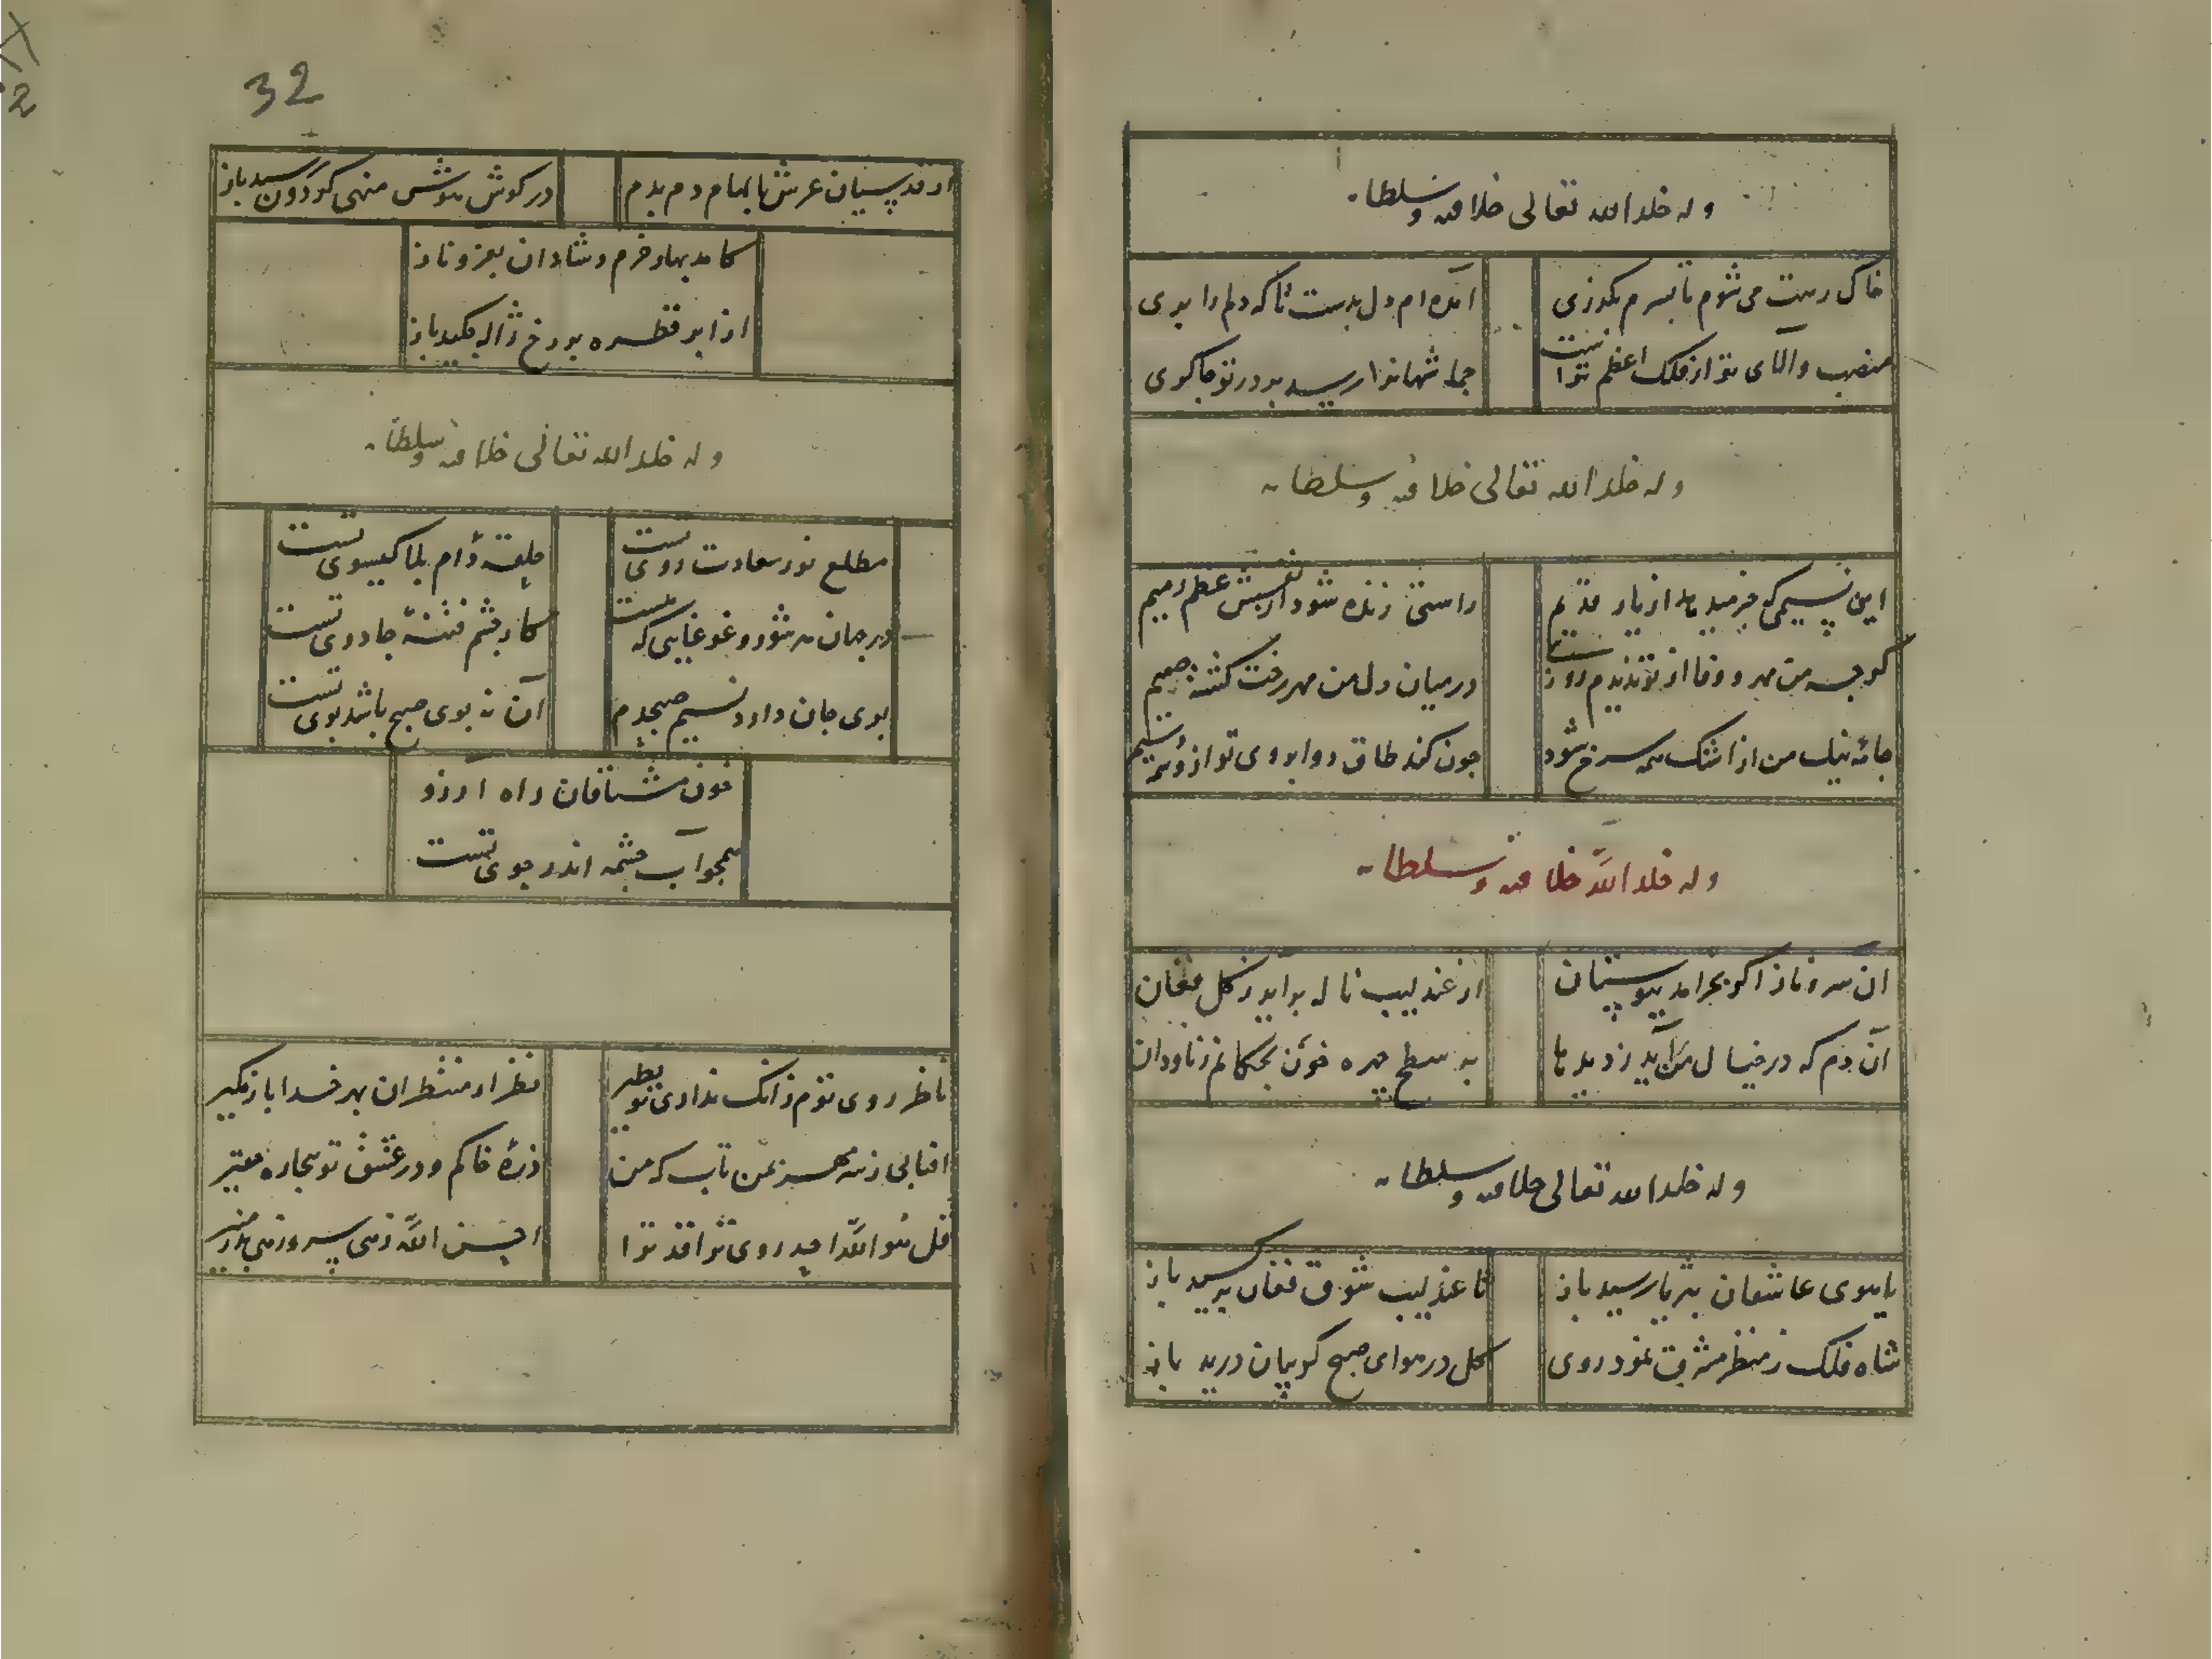 وله خلد الله تعالی خلافته و سلطانه
خاک رهت می شوم تا بسرم بگذری
آمده ام دل بدست تا که دلم را بری
منصب والای تو از فلک اعظم تراست
جمله شهانرا رسد بر در تو چاکری
وله خلد الله تعالی خلافته و سلطانه
این نسیمی که خرمید ماند از یار قدیم
راستی زنده شود از نفسش عظم رمیم
گرچه من مهر و وفا از تو ندیدم روزی
در میان دل من مهر رخت گشته صمیم
جامه نیک من از اشک همه سرخ شود
چون کند طاق دو ابروی تو از وسمه
وله خلد الله خلافته و سلطانه
آن سرو ناز اگر بخرامد ببوستان
از عندلیب ناله برآید ز گل فغان
آن دم که در خیال من آید ز دیدها
به سطح چهره خون بچکانم ز ناودان
وله خلد الله تعالی خلافته و سلطانه
یا بوی عاشقان بر یار رسید باز
تا عندلیب شوق فغان برکشید باز
شاه فلک ز منظر مشرق نمود روی
گل در هوای صبح گریبان درید باز
32
از قدسیان عرش بالهام دم بدم
در گوش هوش منهی گردون رسید باز
کامد بهار خرم و شادان بعز و ناز
از ابر قطره بر رخ ژاله چکید باز
وله خلد الله تعالی خلافته و سلطانه
مطلع نور سعادت روی تست
حلقه دام بلا گیسوی تست
در جهان هر شور و غوغایی که هست
کار چشم فتنه جادوی تست
بوی جان دارد نسیم صبحدم
آن نه بوی صبح باشد بوی تست
خون مشتاقان راه آرزو
همچو آب چشمه اندر جوی تست
ناظر روی توم زانک نداری تو نظیر
نظر از منتظران بهر خدا باز مگیر
افتابی ز سر مهر بمن تاب که من
ذره خاکم و در عشق تو بیچاره
قل هو الله احد روی ترا
احسن الله زهی سر و زهی بدر منیر